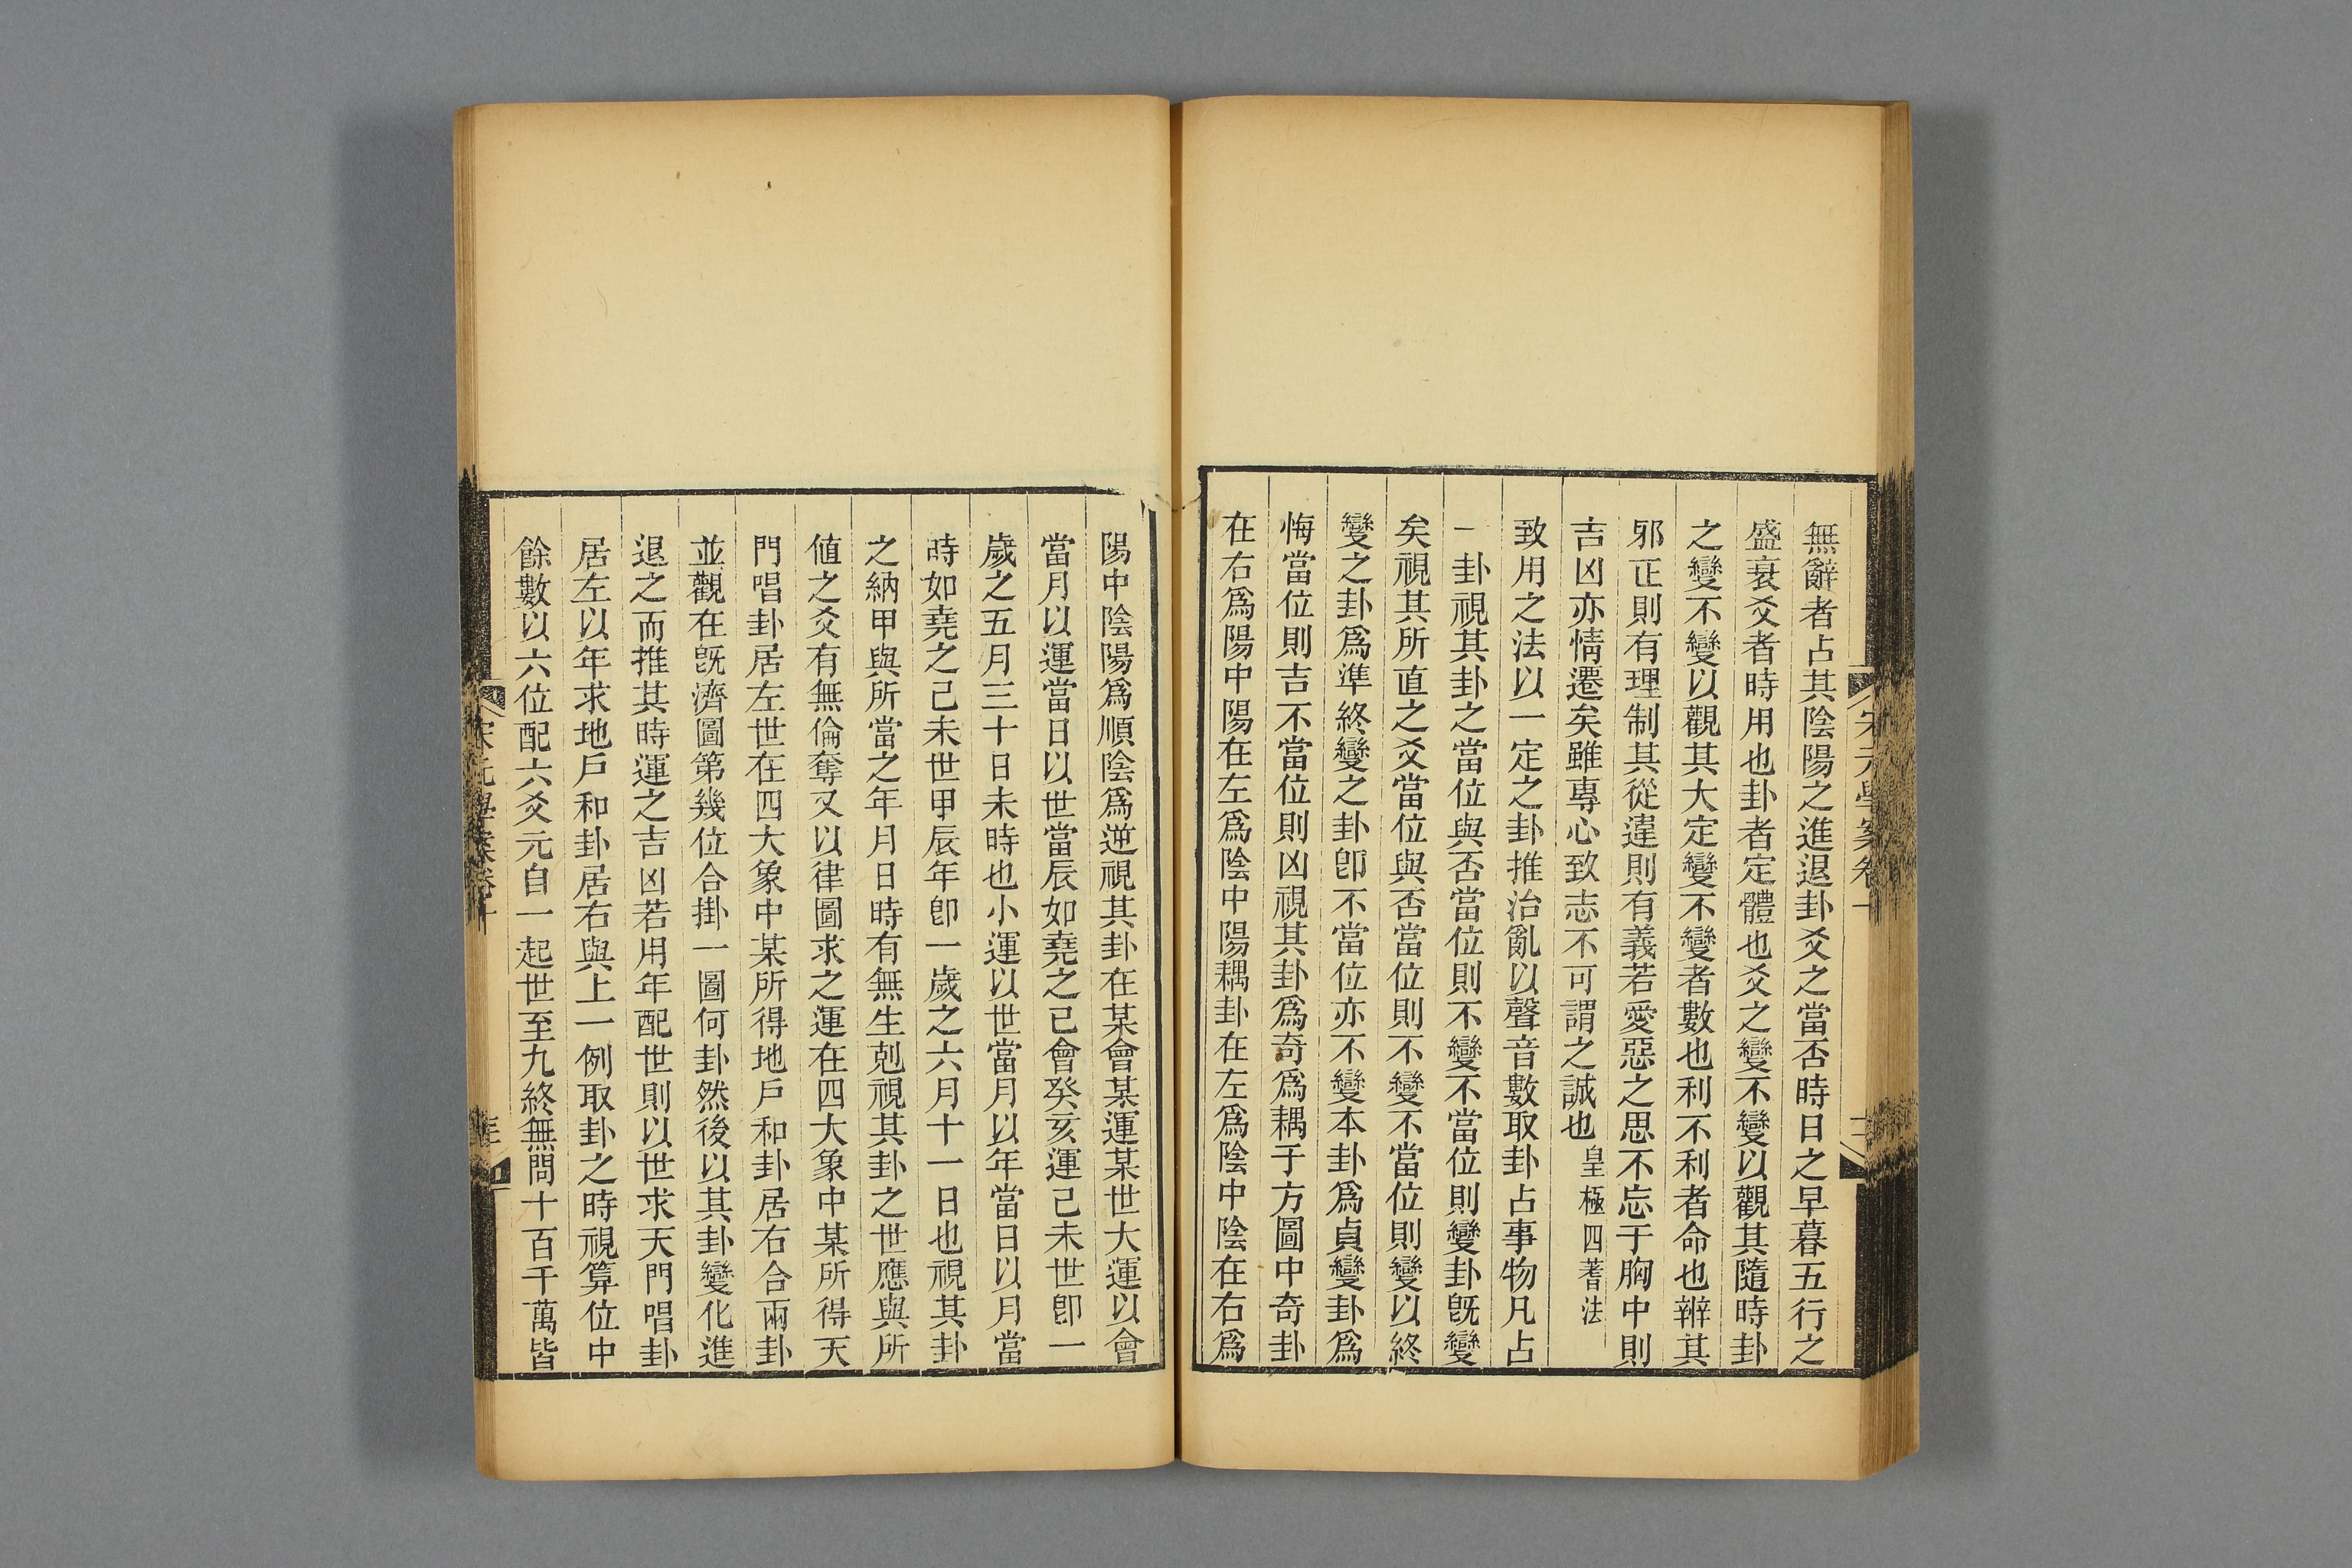 無辭者占其陰陽之進退卦爻之當否時日之早暮五行之
盛衰爻者時用也卦者定體也爻之變不變以觀其隨時卦
之變不變以觀其大定變不變者數也利不利者命也辧其
邪正則有理制其從違則有義若愛惡之思不忘于胸中則
吉凶亦情遷矣雖專心致志不可謂之誠也皇極四蓍法
致用之法以一定之卦推治亂以聲音數取卦占事物凡占
一卦視其卦之當位與否當位則不變不當位則變卦旣變
矣視其所直之爻當位與否當位則不變不當位則變以終
變之卦爲準終變之卦卽不當位亦不變本卦爲貞變卦爲
悔當位則吉不當位則凶視其卦爲奇爲耦于方圖中奇卦
在右爲陽中陽在左爲陰中陽耦卦在左爲陰中陰在右爲
陽中陰陽爲順陰爲逆視其卦在某會某運某世大運以會
當月以運當日以世當辰如堯之己會癸亥運己未世卽一
歲之五月三十日未時也小運以世當月以年當日以月當
時如堯之己未世甲辰年卽一歲之六月十一日也視其卦
之納甲與所當之年月日時有無生剋視其卦之世應與所
値之爻有無倫奪又以律圖求之運在四大象中某所得天
門唱卦居左世在四大象中某所得地戶和卦居右合兩卦
並觀在旣濟圖第幾位合掛一圖何卦然後以其卦變化進
退之而推其時運之吉凶若用年配世則以世求天門唱卦
居左以年求地戶和卦居右與上一例取卦之時視算位中
餘數以六位配六爻元自一起世至九終無問十百千萬皆
宋元學案卷十